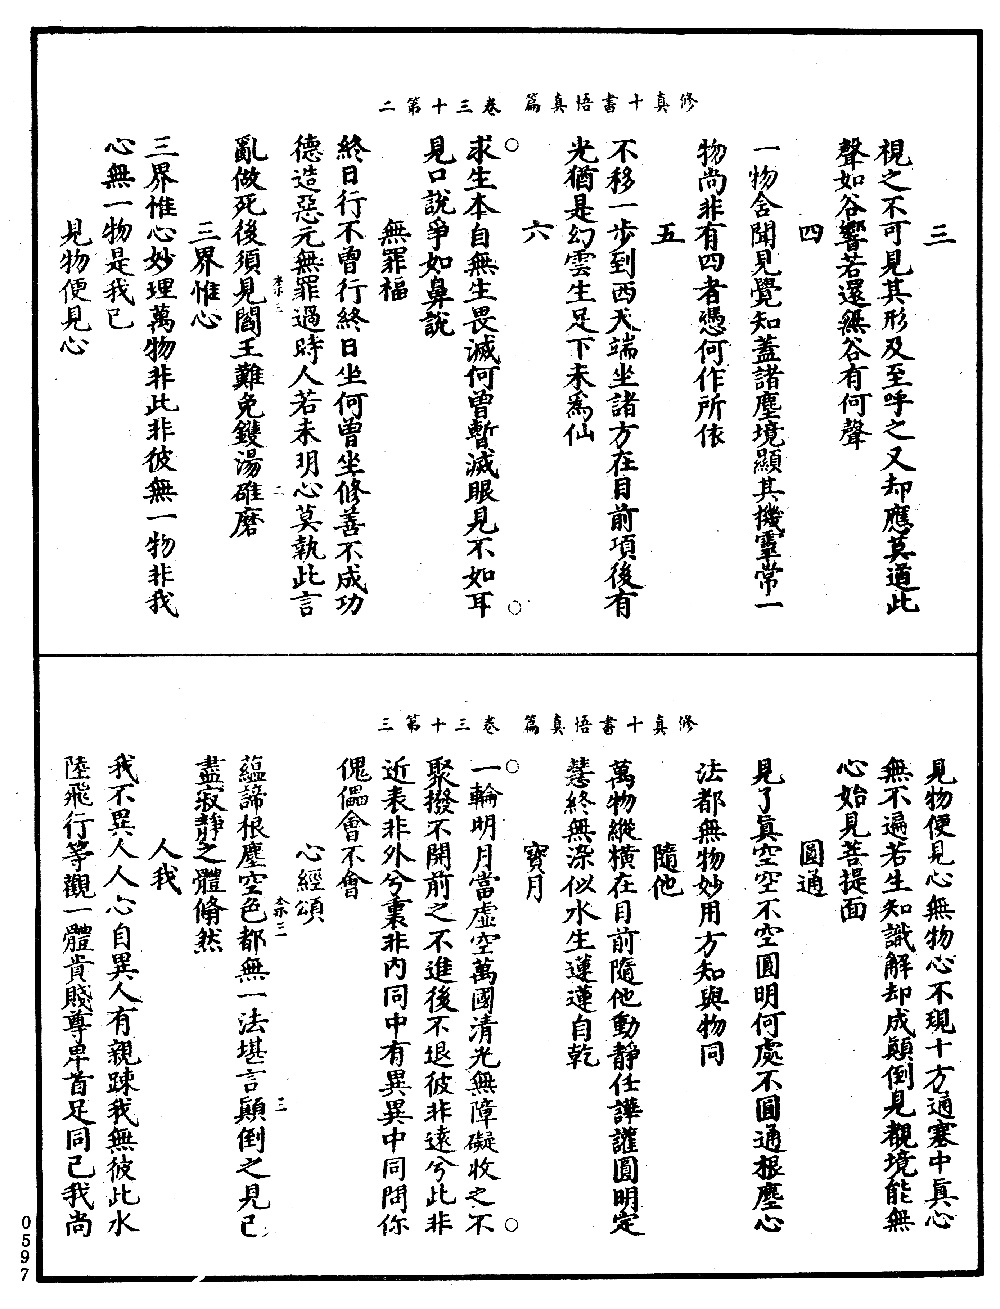 修真十書悟真篇 卷三十第二
三
視之不可見其形及至呼之又却應莫道此
聲如谷響若還無谷有何聲
四
一物舍聞見覺知蓋諸塵境顯其機靈常一
物尚非有四者憑何作所依
五
不移一步到西天端坐諸方在目前項後有
光猶是幻雲生足下未爲仙
六
求生本自無生畏滅何曾暫滅眼見不如耳
見口說爭如鼻說
無罪福
終日行不曾行終日坐何曾坐修善不成功
德造惡元無罪過時人若未明心莫執此言
亂做死後須見閻王難免鑊湯碓磨
三界惟心
三界惟心妙理萬物非此非彼無一物非我
心無一物是我己
見物便見心
修真十書悟真篇 卷三十第三
見物便見心無物心不現十方通塞中眞心
無不遍若生知識解却成顛倒見覩境能無
心始見菩提面
圓通
見了眞空空不空圓明何處不圓通根塵心
法都無物妙用方知與物同
隨他
萬物縱橫在目前隨他動靜任譁讙圓明定
慧終無染似水生蓮蓮自乾
寶月
一輪明月當虛空萬國清光無障礙收之不
聚撥不開前之不進後不退彼非遠兮此非
近表非外兮裏非内同中有異異中同問你
傀儡會不會
心經頌
蘊諦根塵空色都無一法堪言顛倒之見已
盡寂靜之體翛然
人我
我不異人人心自異人有親踈我無彼此水
陸飛行等觀一體貴賤尊卑首足同己我尚
0597